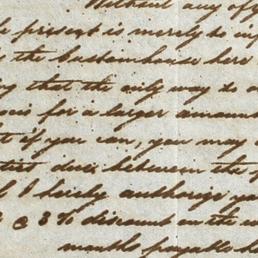 Without any off
e present is merely to inf
the Customhouse here
ing that the only way to o
for a larger amoun
t if you can, you may
between the
I hereby authorize you
@ 3 % discount on the
months payable